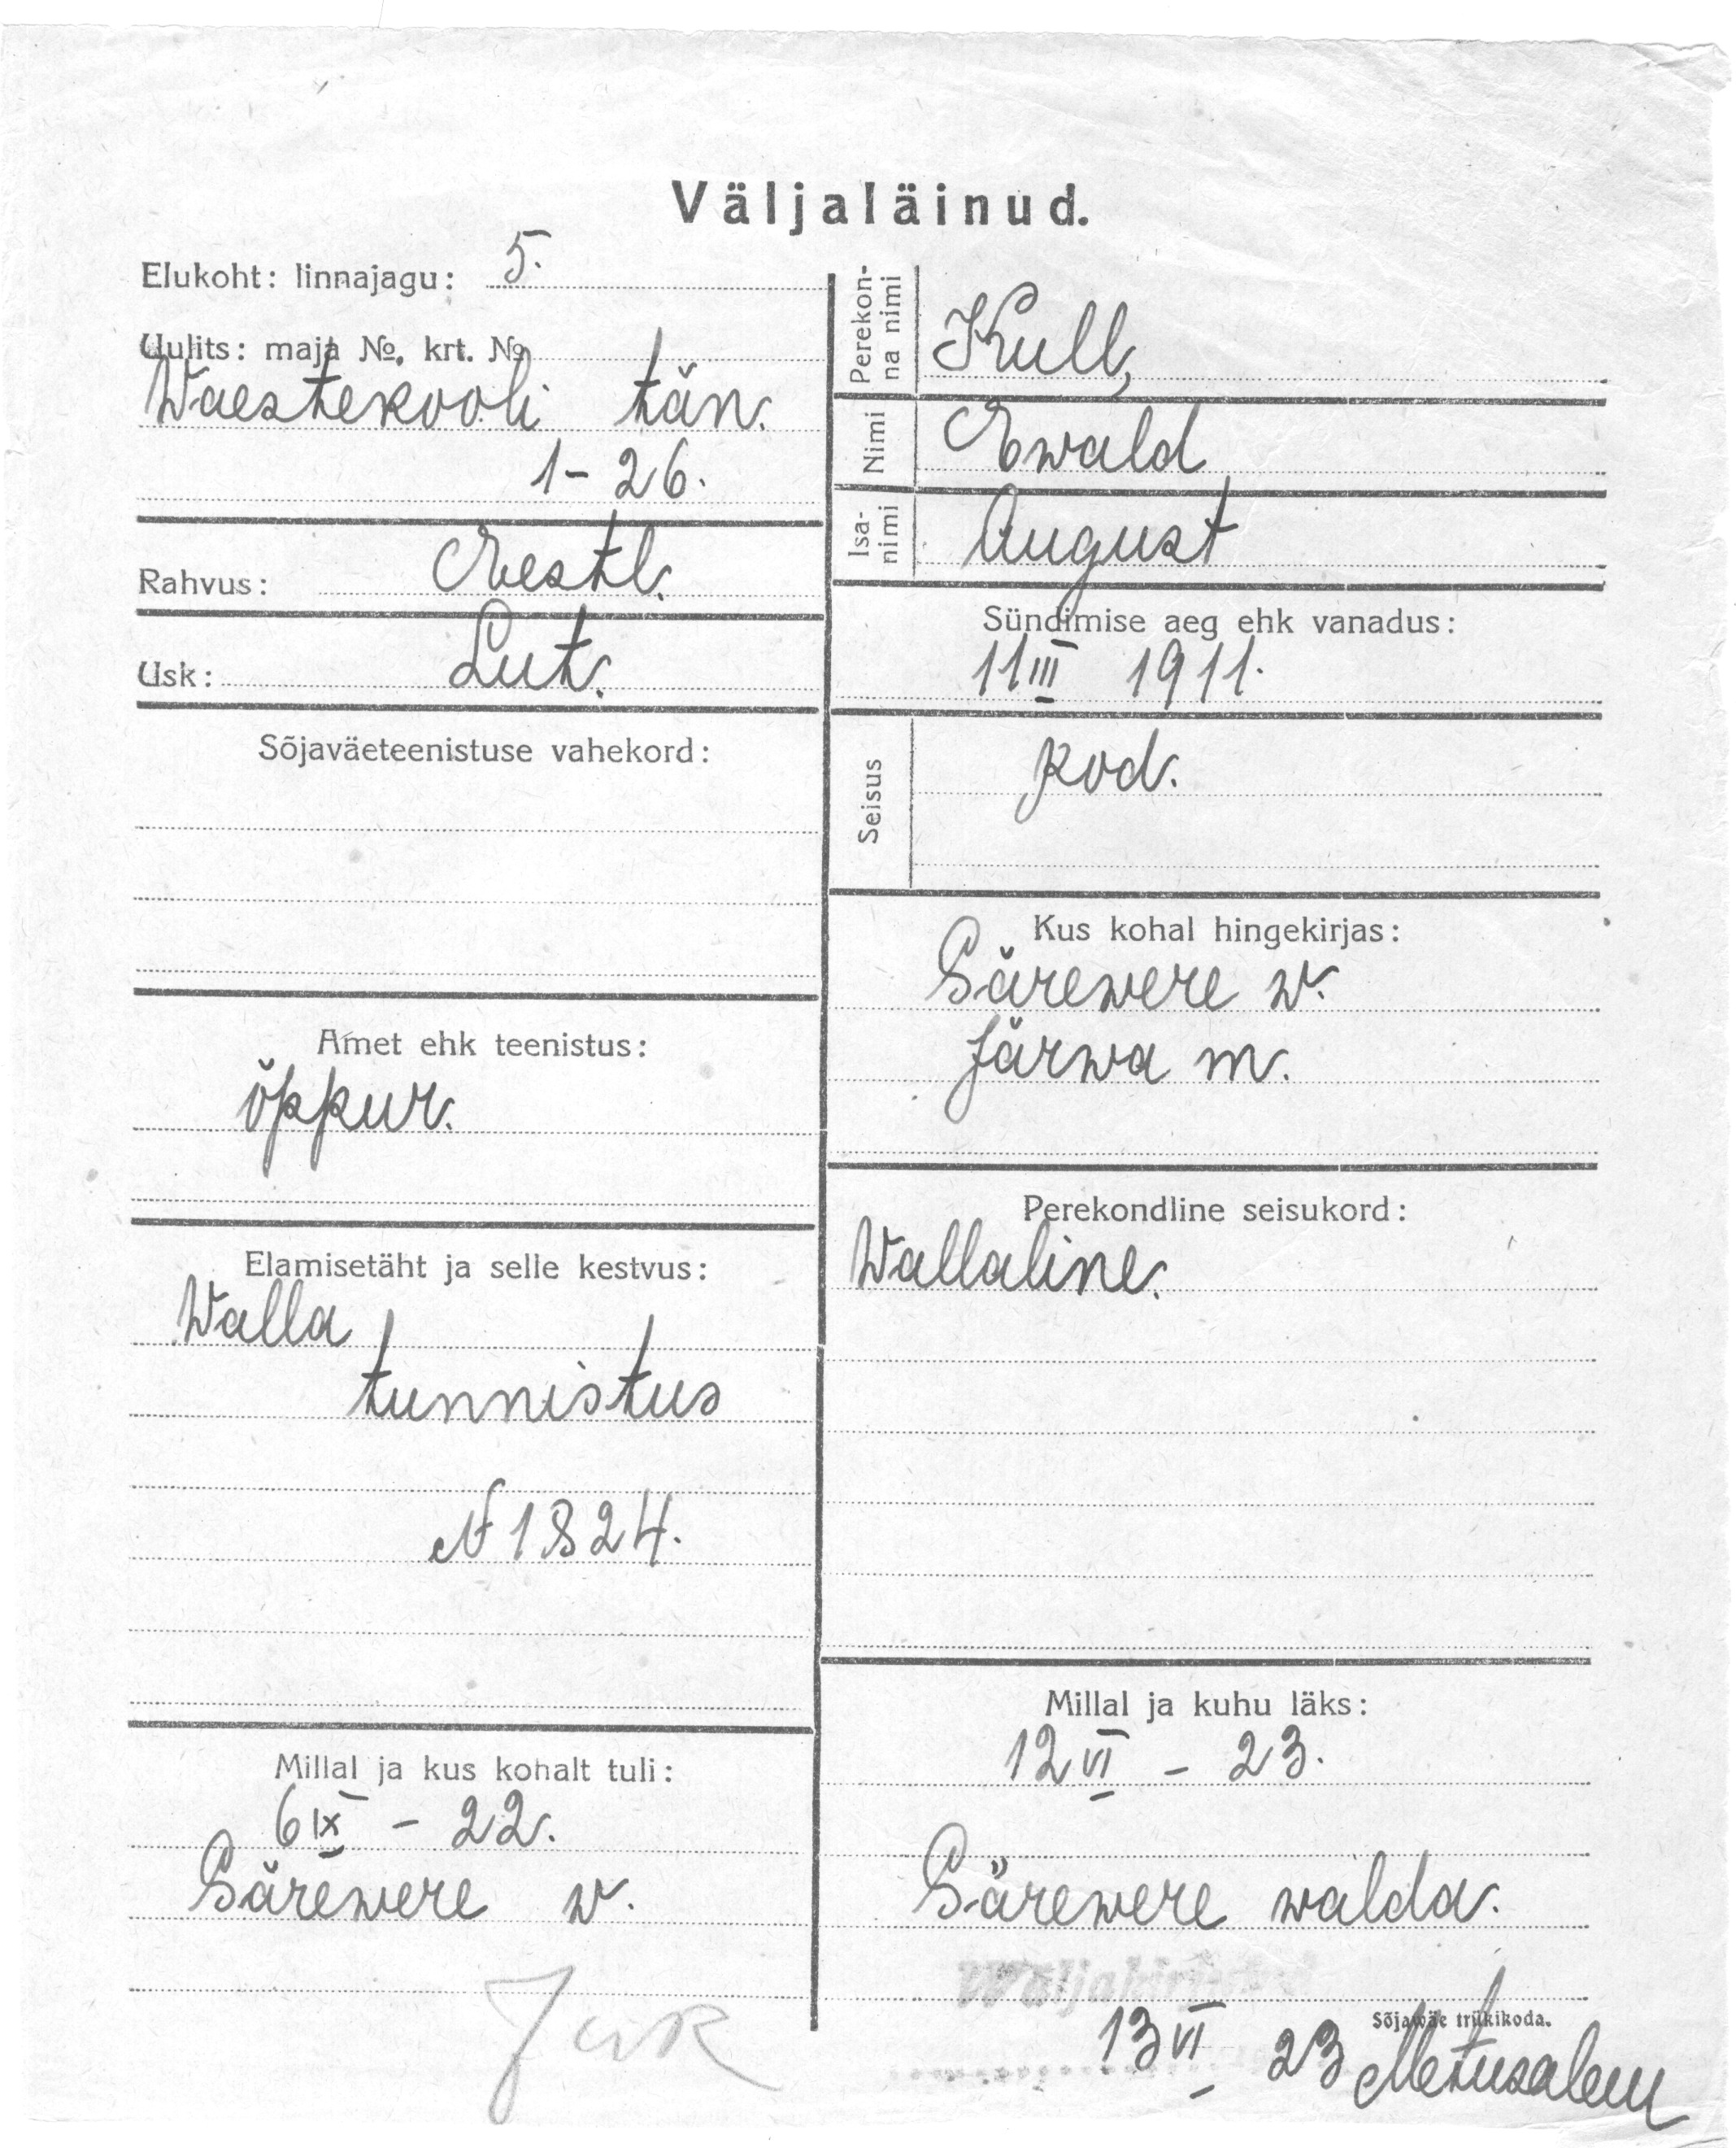 Väljaläinud.
Elukoht: linnajagu: 5.
Uulits: maja №, krt. №
Waestekooli tän.
1-26.
Rahvus: Eestl.
Usk: Lut.
Sõjaväeteenistuse vahekord:
Amet ehk teenistus:
õppur.
Elamisetäht ja selle kestvus:
Walla
tunnistus
№ 1824.
Millal ja kus kohalt tuli:
6 IX - 22.
Särewere w.
Perekon-
na nimi
Kull,
Nimi
Ewald
Isa-
nimi
August
Sündimise aeg ehk vanadus:
11 III 1911.
Seisus
kod.
Kus kohal hingekirjas:
Särewere w.
Järwa m.
Perekondline seisukord:
Wallaline.
Millal ja kuhu läks:
12 VI - 23.
Särewere walda.
13 VI 23
Sõjawäe trükikoda.
Metusalem